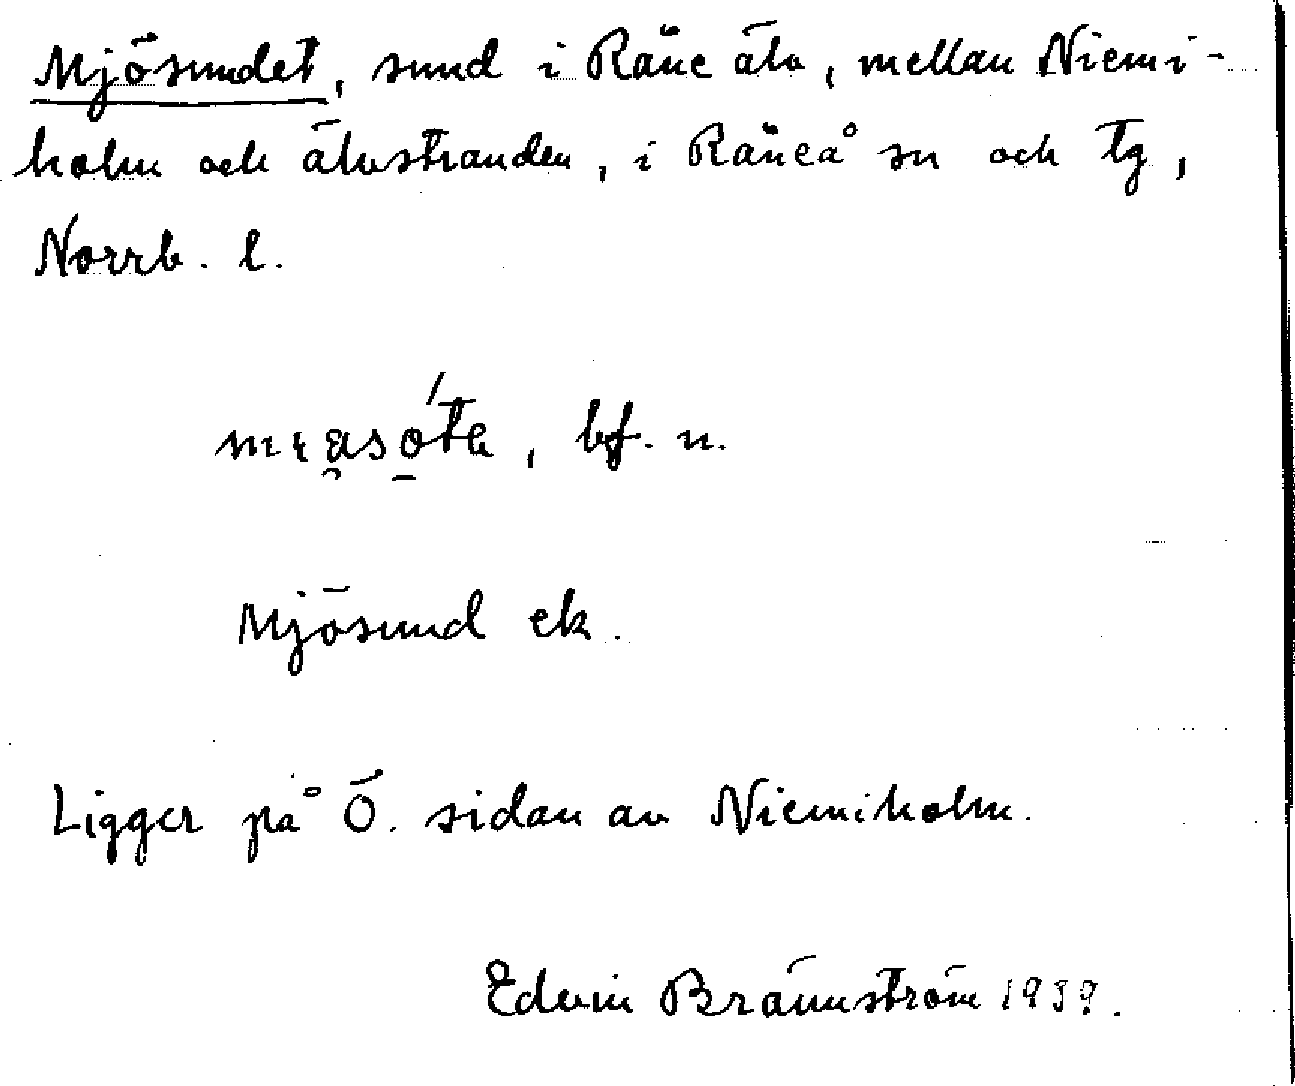 Mjösundet, sund i Råne älv, mellan Niemi-
holm och älvstranden, i Råneå sn och tg,
Norrb. l.
bf. n.
Mjösund ek.
Ligger på Ö. sidan av Niemiholm.
Edvin Brännström 1939.